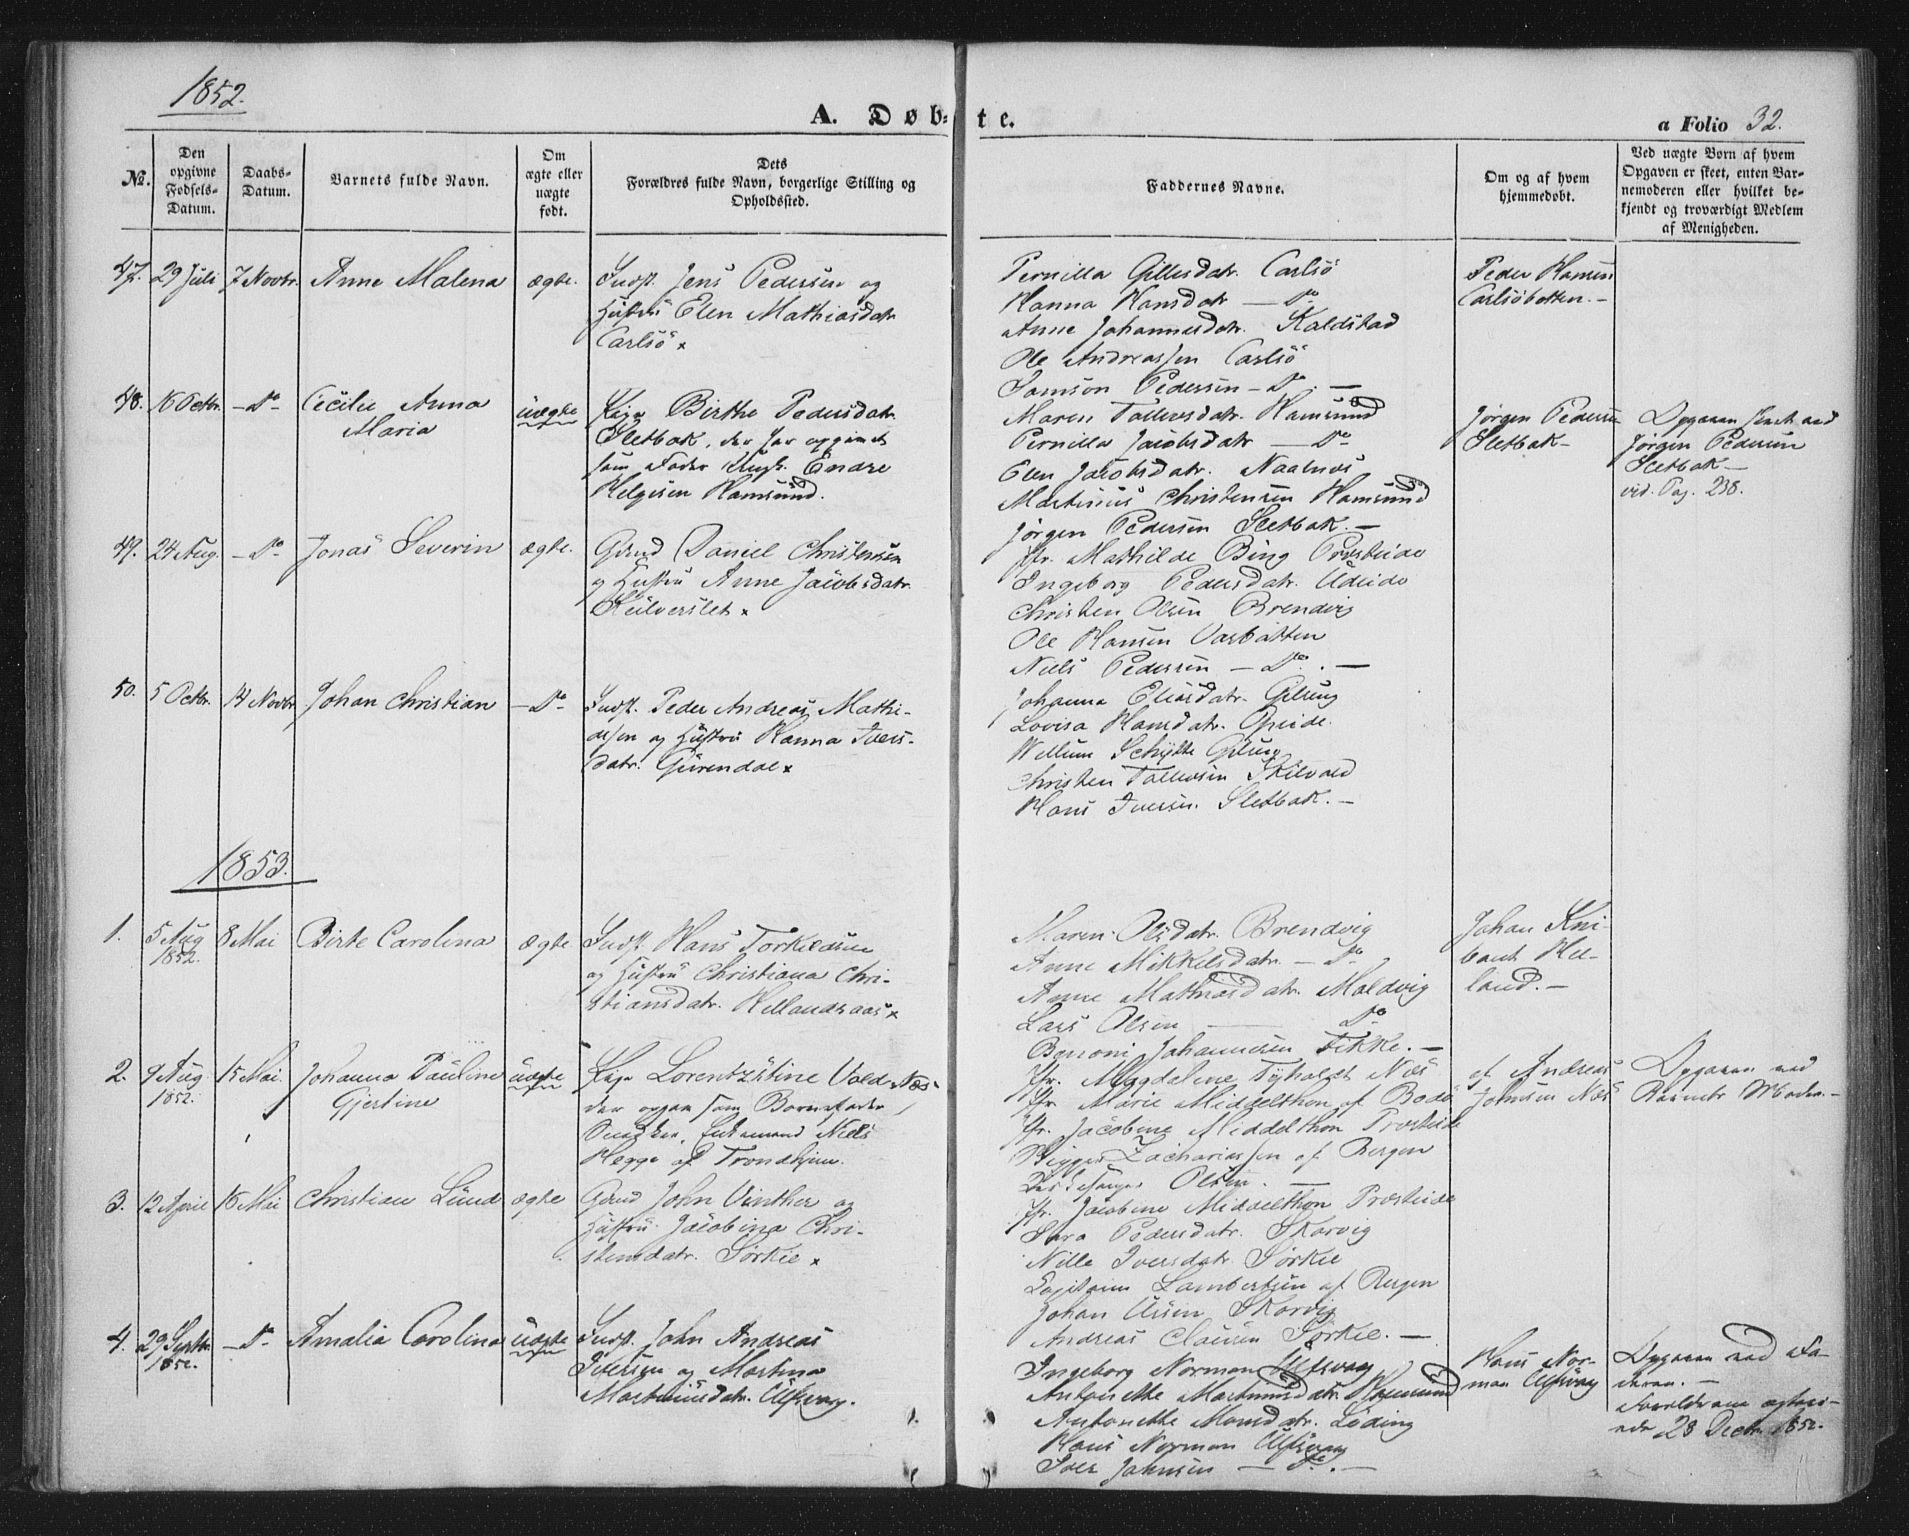 1852.
A. Døb= te. a Folio 32.
No.
Den opgivne Fødsels-Datum.
Daabs-Datum.
Barnets fulde Navn.
Om ægte eller uægte født.
Dets Forældres fulde Navn, borgerlige Stilling og Opholdssted.
Faddernes Navne.
Om og af hvem hjemmedøbt.
Ved uægte Børn af hvem Opgaven er skeet, enten Barnemoderen eller hvilket bekjendt og troværdigt Medlem af Menigheden.
47. 29 Juli 7 Novbr. Anne Malena ægte.
Indst. Jens Pedersen og
Hustru Elen Mathiasdatr
Carlsö x
Pernilla Gillesdatr. Carlsö
Hanna Hansdatr — Do
Anne Johannesdatr. Kaldstad
Ole Andreassen Carlsö
Samson Pedersen — Do. —
Peder Hansen
Carlsöbotten. —
48. 16 Octbr. — Do — Cecilie Anna
Maria
uægte
Pige Birthe Pedersdatr
Sletbak, der har opgivet
som Fader Ungk. Endre
Helgesen Hamsund.
Maren Tollevsdatr. Hamsund
Pernilla Jacobsdatr — Do
Elen Jacobsdatr. Naalnes
Martinus Christensen Hamsund
Jörgen Pedersen Sletbak. —
Jörgen Pedersen
Sletbak —
Opgaven skeet ved
Jörgen Pedersen
Sletbak —
vid. Pag. 238.
49. 24 Aug. — Do — Jonas Severin ægte.
Gmd Daniel Christensen
og Hustru Anne Jacobsdatr.
Kulverslet x
Jfr. Mathilde Bing Presteide
Ingeborg Pedersdatr. Udeide
Christen Olsen Brendvig
Ole Hansen Varbotten
Niels Pedersen — Do. —
50. 5 Octbr. 14 Novbr Johan Christian — Do —
Indst. Peder Andreas Mathi-
esen og Hustru Hanna Ivers-
datr. Gürendal x
Johanna Eliasdatr. Glsung
Lovisa Hansdatr. Opeide.
Willum Schytte
Christen Tollevsen Skilvald
Hans Iversen. Sletbak. —
1853.
1. 5 Aug 1852. 8 Mai Birte Carolina ægte
Indst. Hans Torkildsen
og Hustru Christiana Chri-
stiansdatr. Hellandsaas x
Maren Olsdatr. Brendvig
Anne Mikkelsdatr. — Do
Anne Mathiasdatr. Moldvig
Lars Olsen — Do
Benoni Johannesen Fikke. —
Johan Kni-
bant Hel-
land. —
2. 9 Aug 1852. 15 Mai. Johanna Pauline
Gjertine
uægte
Pige Lorentzstine Vold Næs
der opgav som Barnefader
Enkemand Niels
Hegge af Trondhjem.
Jfr. Magdalene Tyholdt Næs
Jfr. Marie Middelthon af Bodö
Jfr. Jacobine Middelthon Presteide
Zachariassen af Bergen
Olsen. —
af Andreas
Johnsen Næs
Opgaven ved
Barnets Moder. —
3. 12 April 16 Mai Christian Lund ægte
Gmd John Vinther og
Hustru Jacobina Chri-
stensdatr. Sörkil x
Jfr. Jacobine Middelthon Presteide
Sara Pedersdatr. Skorvig
Nille Iversdatr. Sörkil
Capitain Lambertsen af Bergen
Johan Olsen Skorvig
Andreas Clausen Sörkil. —
4. 29 Septbr 1852. — Do — Amalia Carolina uægte
Indst. John Andreas
Petersen og Martina
Martinusdatr. Ulfsvaag.
Ingeborg Norman Ulfsvaag
Antonette Martinusdatr. Hamsund
Antonette Monsdatr. Löding
Hans Norman Ulfsvaag
Iver Johnsen — Do. —
Hans Nor-
man Ulfsvaag
Opgaven ved Fa-
deren. —
Forældrene ægtevi-
ede 28 Decbr. 1852.